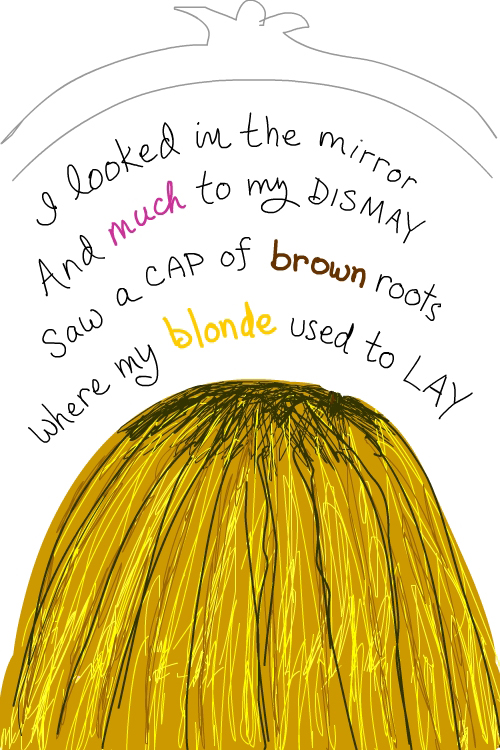 I looked in the mirror
And much to my DISMAY
Saw a CAP of brown roots
Where my blonde used to LAY